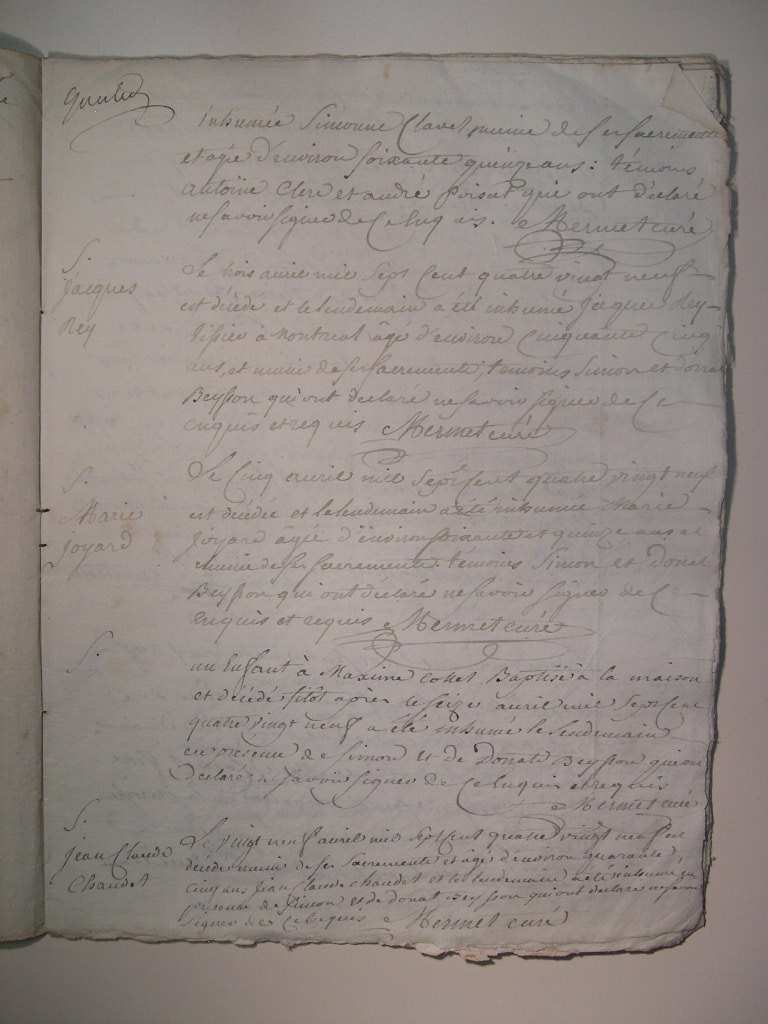 inhumée Simonne Clavel munie de ses sacrements
et agée d'environ soixante quinze ans : témoins
antoine Clere et andré poisat qui ont déclaré
ne savoir signer de Ce Enquis. Mermet curé
S.
Jacques
Rey
Le trois avril mil sept Cent quatre vingt neuf
est décédé et le lendemain a été inhumé Jacques Rey
à Montreal âgé d'environ Cinquante Cinq
ans, et muni de ses sacrements, temoins Simon et donat
Beysson qui ont declaré ne savoir signer de Ce
enquis et requis Mermet curé
S.
Marie
joyard
Le Cinq avril mil sept Cent quatre vingt neuf
est décédée et le lendemain a été inhumée Marie
Joyard âgée d'environ soixante et quinze ans et
munie de ses sacrements. témoins Simon et Donat
Beysson qui ont déclaré ne savoir signer de Ce
Enquis et requis Mermet curé
S.
un Enfant à Maxime Collet Baptisé à la maison
et décédé sitôt après le seize avril mil sept Cent
quatre vingt neuf a été inhumé le lendemain
en presence de Simon et de Donat Beysson qui ont
declaré ne savoir signer de Ce Enquis et requis
Mermet curé
S.
jean Claude
Chaudet
Le vingt neuf avril mil sept Cent quatre vingt neuf est
décédé muni de ses sacrements et âgé d'environ quarante
Cinq ans Jean Claude chaudet et le lendemain a été inhumé en
presence de Simon et de donat Beysson qui ont declaré ne savoir
signer de Ce Requis Mermet curé